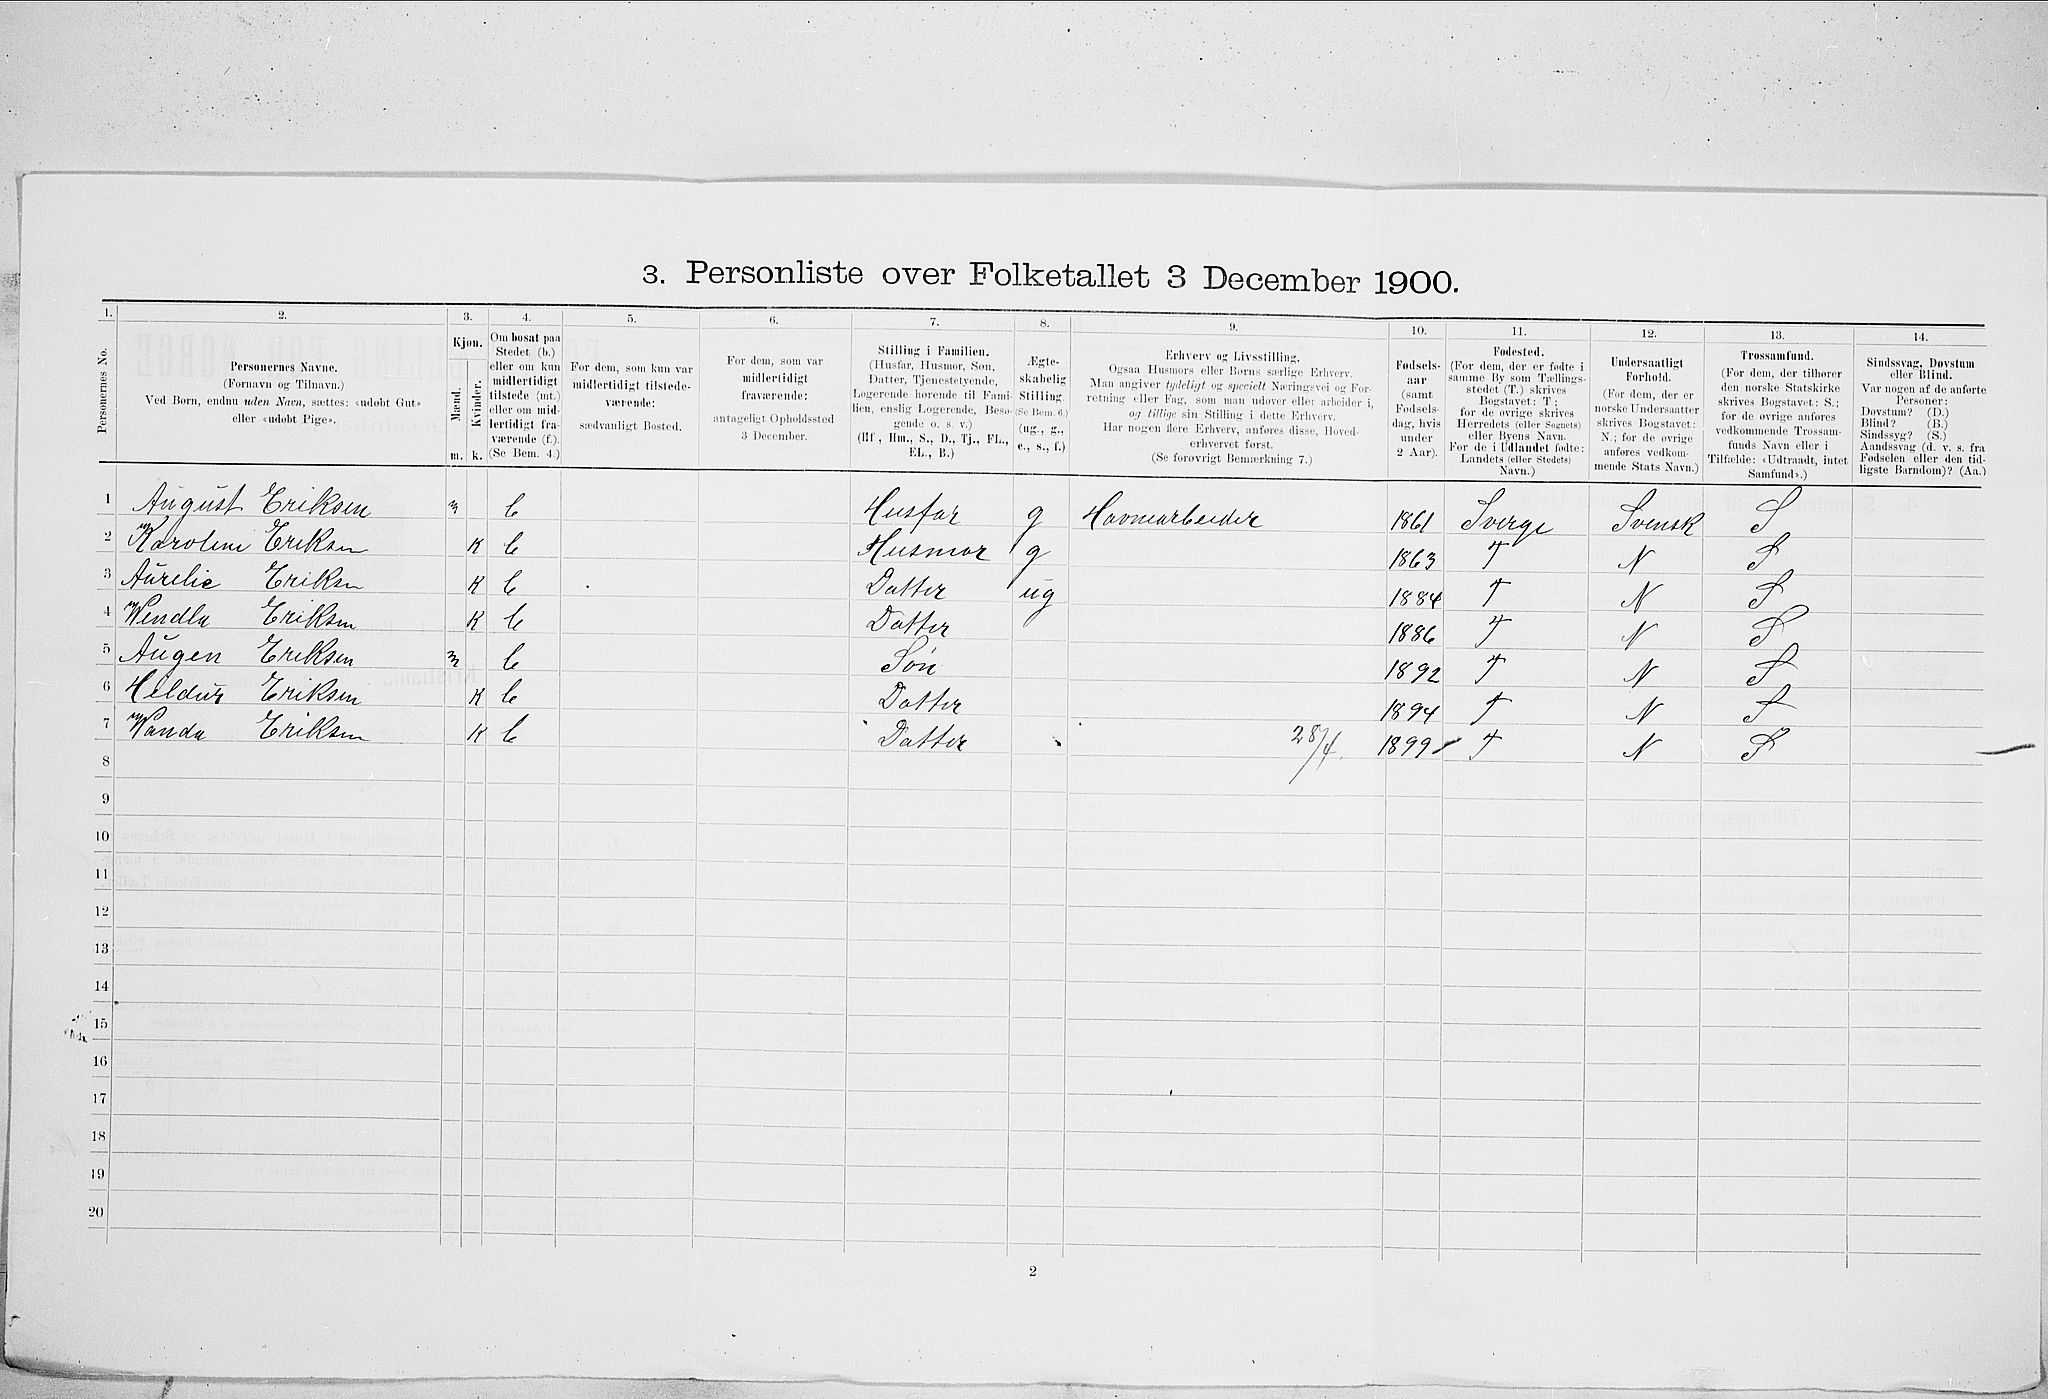 3. Personliste over Folketallet 3 December 1900.
1. 2. 3. 4. 5. 6. 7. 8. 9. 10. 11. 12. 13. 14.
Personernes No.
Personernes Navne.
(Fornavn og Tilnavn.)
Ved Børn, endnu uden Navn, sættes: «udøbt Gut»
eller «udøbt Pige».
Kjøn.
Mænd.
Kvinder.
m. k.
Om bosat paa
Stedet (b.)
eller om kun
midlertidigt
tilstede (mt.)
eller om mid-
lertidigt fra-
værende (f.).
(Se Bem. 4.)
For dem, som kun var
midlertidigt tilstede-
værende:
sædvanligt Bosted.
For dem, som var
midlertidigt
fraværende:
antageligt Opholdssted
3 December.
Stilling i Familien.
(Husfar, Husmor, Søn,
Datter, Tjenestetyende,
Logerende hørende til Fami-
lien, enslig Logerende, Besø-
gende o. s. v.)
(Hf., Hm., S., D., Tj., FL.,
EL., B.)
Ægte-
skabelig
Stilling.
(Se Bem. 6.)
(ug., g.,
e., s., f.)
Erhverv og Livsstilling.
Ogsaa Husmors eller Børns særlige Erhverv.
Man angiver tydeligt og specielt Næringsvei og For-
retning eller Fag, som man udover eller arbeider i,
og tillige sin Stilling i dette Erhverv.
Har nogen flere Erhverv, anføres disse, Hoved-
erhvervet først.
(Se forøvrigt Bemærkning 7.)
Fødsels-
aar
(samt
Fødsels-
dag, hvis
under
2 Aar).
Fødested.
(For dem, der er fødte i
samme By som Tællings-
stedet (T.) skrives
Bogstavet: T;
for de øvrige skrives
Herredets (eller Sognets)
eller Byens Navn.
For de i Udlandet fødte:
Landets (eller Stedets)
Navn.)
Undersaatligt
Forhold.
(For dem, der er
norske Undersaatter
skrives Bogstavet:
N.; for de øvrige
anføres vedkom-
mende Stats Navn.)
Trossamfund.
(For dem, der tilhører
den norske Statskirke
skrives Bogstavet: S.;
for de øvrige anføres
vedkommende Trossam-
funds Navn eller i
Tilfælde: «Udtraadt, intet
Samfund».)
Sindssvag, Døvstum
eller Blind.
Var nogen af de anførte
Personer:
Døvstum? (D.)
Blind? (B.)
Sindssyg? (S.)
Aandssvag (d. v. s. fra
Fødselen eller den tid-
ligste Barndom)? (Aa.)
1 August Eriksen m b Husfar g Havnearbeider 1861 Sverge Svensk S
2 Karoline Eriksen K b Husmor g 1863 T N S
3 Aurelie Eriksen K b Datter ug 1884 T N S
4 Wendla Eriksen K b Datter 1886 T N S
5 Augen Eriksen m b Søn 1892 T N S
6 Heldur Eriksen K b Datter 1894 T N S
7 Wanda Eriksen K b Datter 28/4. 1899 T N S
8
9
10
11
12
13
14
15
16
17
18
19
20
2